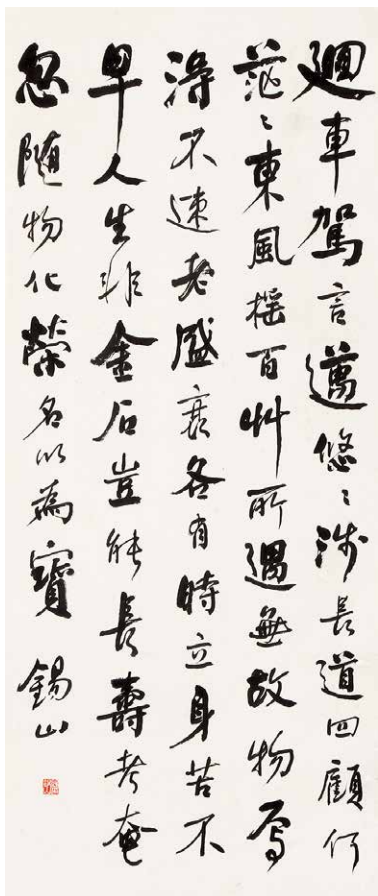 迴車駕言邁悠〻涉長道四顧何
茫〻東風搖百艸所遇無故物焉
得不速老盛衰各有時立身苦不
早人生非金石豈能長壽考奄
忽随物化榮名以為寶 錫山